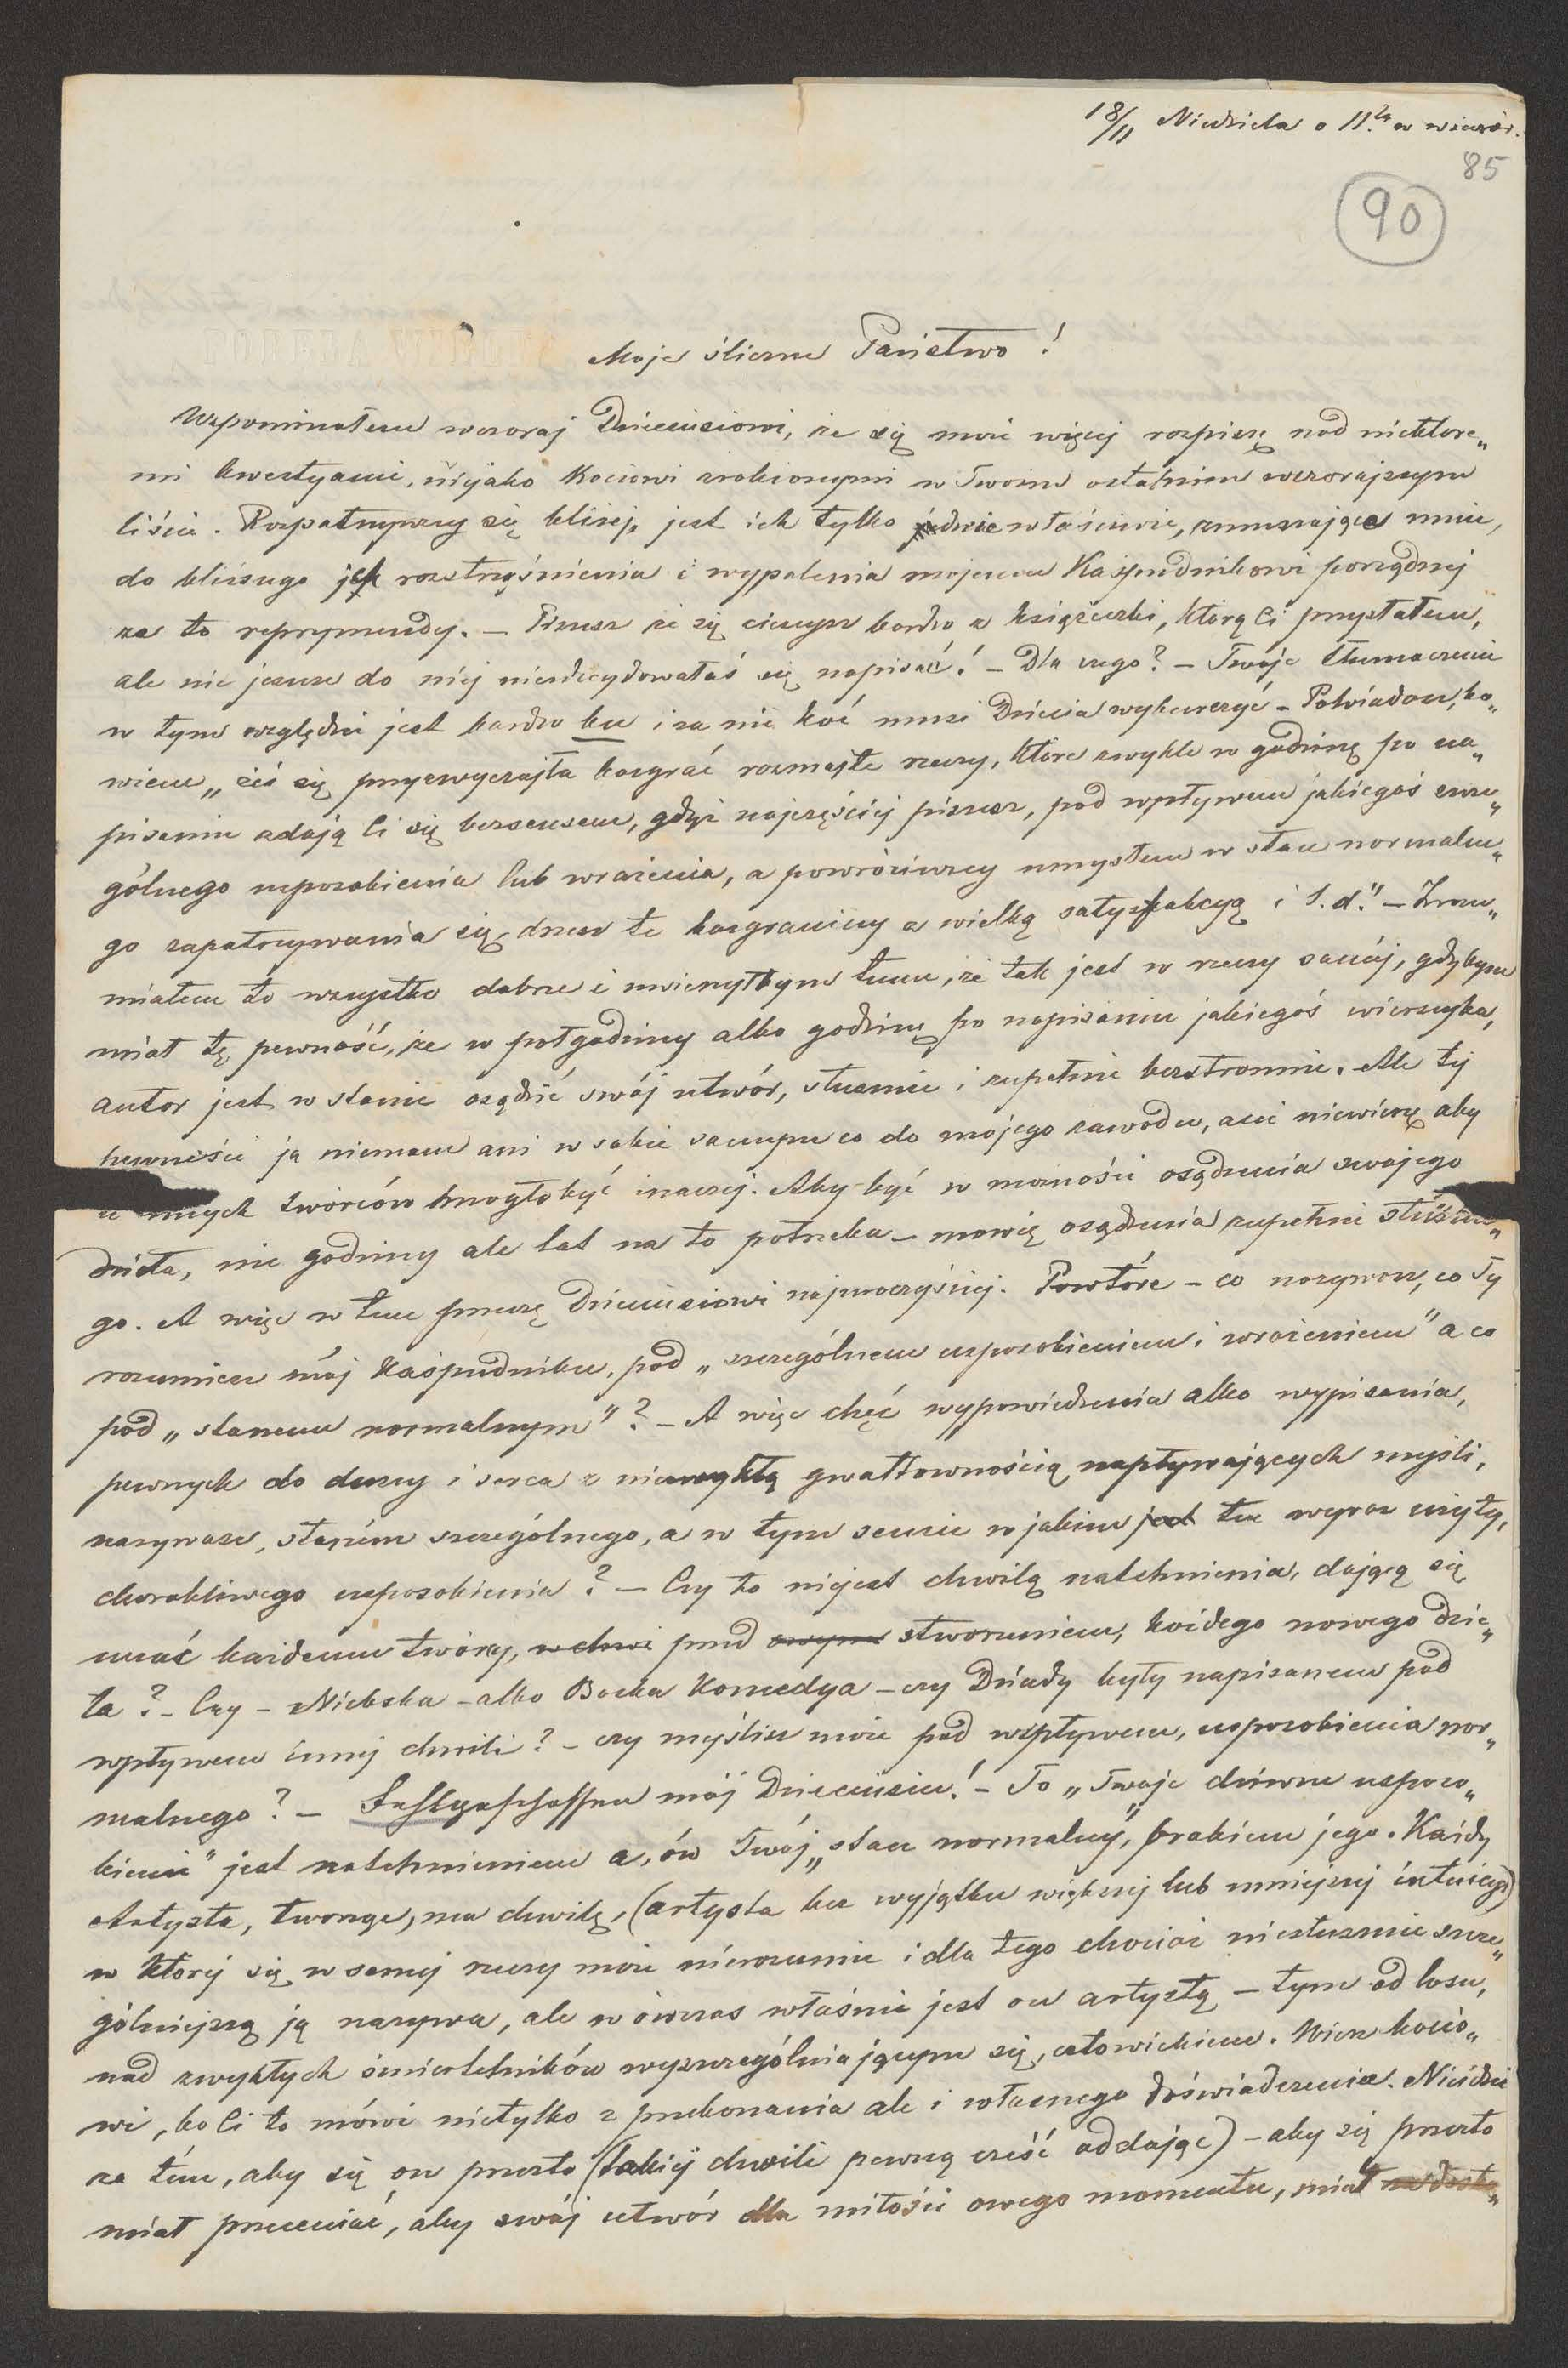 18/11 Niedziela o 11.tej w wieczór.
85
90
Moje śliczne Państwo!
Wspominałem wczoraj Dzieciusiowi, że się może więcej rozpiszę nad niektóre„
mi kwestyami, niejako Kociowi zrobionymi w Twoim ostatnim wczorajszym
liście. Rozpatrzywszy się bliżej, jest ich tylko dwie właściwie, zmuszające mnie,
do bliższego ich roztrząśnienia i wypalenia mojemu Kaśpudnikowi porządnej
za to reprymendy. – Piszesz że się cieszysz bardzo z książeczki, którą Ci przysłałem,
ale nic jeszcze do niej niezdecydowałaś się napisać! – Dla czego? – Twoje tłumaczenie
w tym względzie jest bardzo be i za nie Koć musi Dziecia wyburczyć – Powiadasz, bo„
wiem „żeś się przyzwyczaiła bazgrać rozmaite rzeczy, które zwykle w godzinę po na„
pisaniu zdają Ci się bezsensem, gdyż najczęściej piszesz, pod wpływem jakiegoś szcze„
gólnego usposobienia lub wrażenia, a powróciwszy umysłem w stan normalne„
go zapatrywania się, drzesz te bazgraniny z wielką satysfakcyą i t.d." – Zrozu„
miałem to wszystko dobrze i uwierzyłbym temu, że tak jest w rzeczy saméj, gdybym
miał tę pewność, że w półgodziny albo godzinę po napisaniu jakiegoś wierszyka,
autor jest w stanie osądzić swój utwór, słusznie i zupełnie bezstronnie. Ale tej
pewności ja niemam ani w sobie samym co do mojego zawodu, ani niewierzę aby
u innych twórców mogło być inaczej. Aby być w możności osądzenia swojego
dzieła, nie godziny ale lat na to potrzeba – mówię osądzenia zupełnie słuszne„
go. A więc w tem przeczę Dzieciusiowi najuroczyściej. Powtóre – co nazywasz, co Ty
rozumiesz mój Kaśpudniku, pod „szczególnem usposobieniem i wrażeniem" a co
pod „stanem normalnym"? – A więc chęć wypowiedzenia albo wypisania,
pewnych do duszy i serca z niezwykłą gwałtownością napływających myśli,
nazywasz, stanem szczególnego, a w tym sensie w jakim jest ten wyraz użyty,
chorobliwego usposobienia? – Czy to niejest chwilą natchnienia, dającą się
uczuć każdemu twórcy, w chwi przed owym stworzeniem, każdego nowego dzie„
ła? – Czy – Niebska – albo Boska Komedya – czy Dziady były napisanem pod
wpływem innej chwili? – czy myślisz może pod wspływem, usposobienia nor„
malnego? – Fehlgeschossen mój Dzieciusiu! – To „Twoje dziwne usposo„
bienie" jest natchnieniem a, ów Twój „stan normalny", brakiem jego. Każdy
Artysta, tworząc, ma chwilę, (artysta bez wyjątku większej lub mniejszej intuicyi)
w której się w samej rzeczy może nierozumie i dla tego chociaż niesłusznie szcze„
gólniejszą ją nazywa, ale wówczas właśnie jest on artystą – tym od losu,
nad zwykłych śmiertelników wyszczególniającym się, człowiekiem. Wierz Kocio„
wi, bo Ci to mówi nietylko z przekonania ale i własnego doświadczenia. Nieidzie
za tém, aby się on przeto (takiéj chwili pewną cześć oddając) – aby się przeto
miał przeceniać, aby swój utwór dla miłości owego momentu, miał